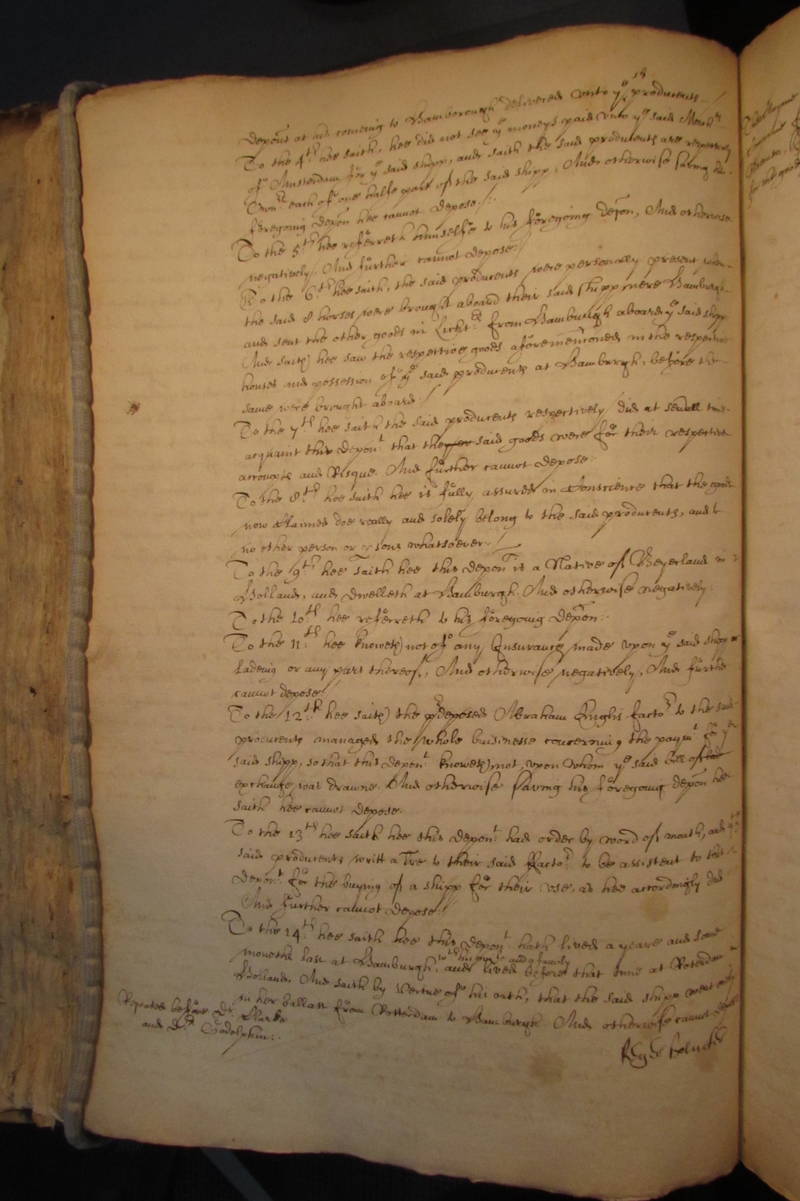 depon.t at his coming to Hamborough delivered unto y.e producents.
To the 4.th hee saith, hee did not see y.e moneys paid unto y.e said
of Amsterdam for y.e said shipp, and saith the said producents are respectively
Own.rs each of one halfe part of the said shipp, And otherwise saving his
foregoing depon hee cannot depose.
To the 5.th hee referreth himselfe to his foregoing depon, And otherwise
negatively. And further cannot depose
To the 6.th hee saith, the said producents were personally present when
the said 8 horses were brought aboard their said shipp neere Hamburgh
and sent the other goods in Light.rs from Hamburgh aboard y.e said shipp
And saith hee saw the respective goods aforementioned in the respective
houses and possession of y.e said producents at Hamburgh, before the
same were brought aboard
To the 7.th hee saith the said producents respectively did at severall times
acquaint this depon.t that the said goods were for their respective
accompts and Risque. And further cannot depose.
To the 8.th hee saith hee is fully assured in Conscience that the goods
now claimed doe really and solely belong to the said producents, and to
no other person or persons whatsoever
To the 9.th hee saith hee this depon.t is a Native of Beyerland in
Holland, and dwelleth at Hamburgh. And otherwise negatively.
To the 10.th hee referreth to his foregoing depon.
To the 11.th hee knoweth not of any Insurance made upon y.e said shipp or
Ladeing or any part thereof, And otherwise negatively, And further
cannot depose
To the 12.th hee saith the p.rdeposed Abraham facto.r to the said
producents managed the whole buisinesse concerning the paym.t for y.e
said shipp, so that this depon.t knoweth not upon whom y.e said bill of
exchange was drawne. And otherwise saving his foregoing depon hee
saith hee cannot depose.
To the 13.th hee saith hee this depon.t had order by word of mouth, and y.e
said producents writt a Tre to their said Facto.r to be assistent to this
depon.t for the buying of a shipp for their use, as hee accordingly did
And further cannot depose
To the 14.th hee saith hee this depon.t hath lived a yeare and some
moneths last at Hamburgh, w.th his wife and family and lived before that time at Rotterdam in
Holland, And saith by Vertue of his oath, that the said shipp went only
in her ballast from Rotterdam to Hamburgh And otherwise cannot depose
Repeated before D.r Clarke
and D.r Godolphin.